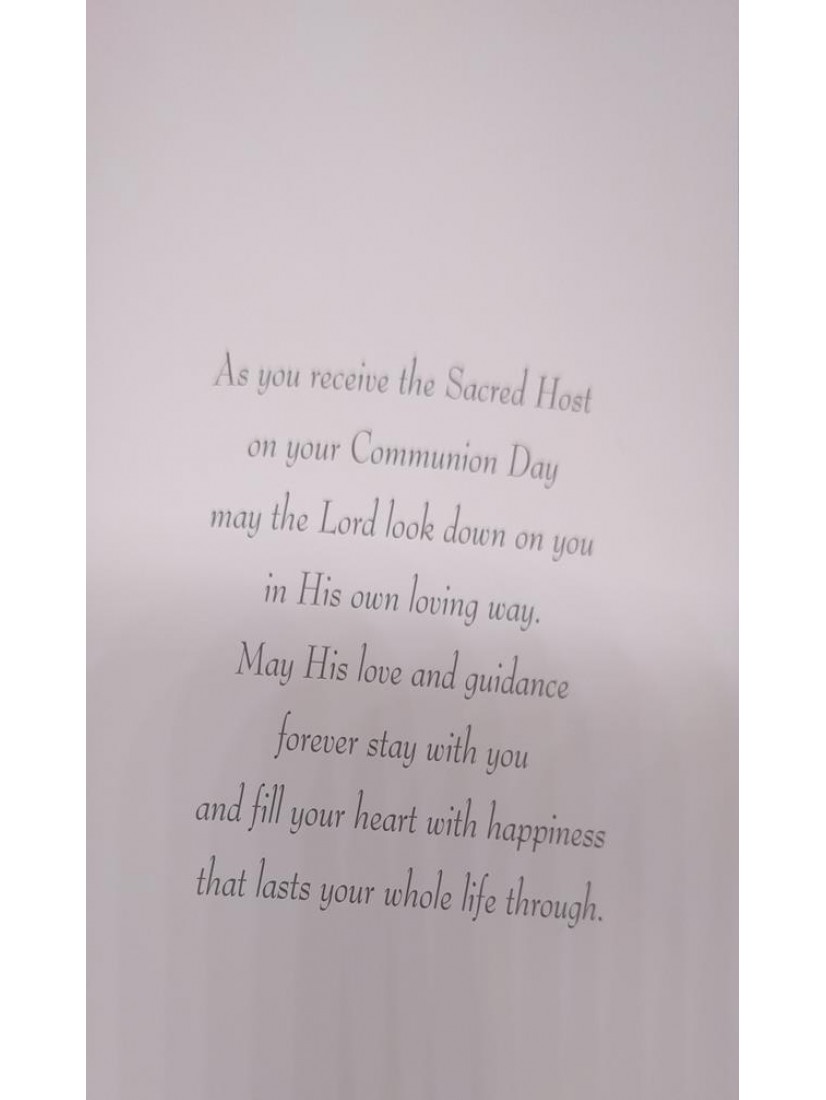 As you receive the Sacred Host
on your Communion Day
may the Lord look down on you
in His own loving way.
May His love and guidance
forever stay with you
and fill your heart with happiness
that lasts your whole life through.